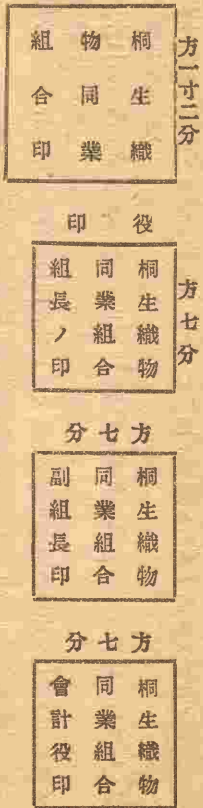 方一寸二分
桐生織
物同業
組合印
役印
方七分
桐生織物
同業組合
組長ノ印
方七分
桐生織物
同業組合
副組長印
方七分
桐生織物
同業組合
會計役印